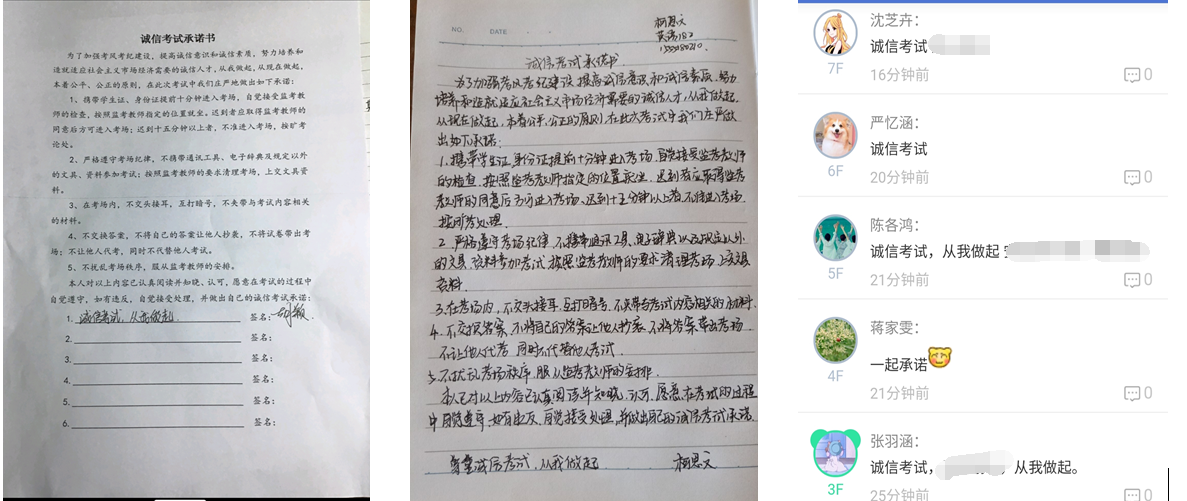 诚信考试承诺书
为了加强考风考纪建设，提高诚信意识和诚信素质，努力培养和
造就适应社会主义市场经济需要的诚信人才，从我做起，从现在做起，
本着公平、公正的原则，在此次考试中我们庄严地做出如下承诺：
1、携带学生证、身份证提前十分钟进入考场，自觉接受监考教
师的检查，按照监考教师指定的位置就坐。迟到者应取得监考教师的
同意后方可进入考场；迟到十五分钟以上者，不准进入考场，按旷考
论处。
2、严格遵守考场纪律，不携带通讯工具、电子辞典及规定以外
的文具、资料参加考试；按照监考教师的要求清理考场，上交文具资
料。
3、在考场内，不交头接耳，互打暗号，不夹带与考试内容相关
的材料。
4、不交换答案，不将自己的答案让他人抄袭，不将试卷带出考
场；不让他人代考，同时不代替他人考试。
5、不扰乱考场秩序，服从监考教师的安排。
本人对以上内容已认真阅读并知晓、认可，愿意在考试的过程中
自觉遵守，如有违反，自觉接受处理，并做出自己的诚信考试承诺：
1. 诚信考试，从我做起 签名：
2. 签名：
3. 签名：
4. 签名：
5. 签名：
6. 签名：
NO. DATE
柯思文
英语182
诚信考试承诺书
为了加强考风考纪建设，提高诚信意识和诚信素质，努力
培养和造就适应社会主义市场经济需要的诚信人才，从我做起，
从现在做起，本着公平、公正的原则，在此次考试中我们庄严做
出如下承诺：
1.携带学生证、身份证提前十分钟进入考场，自觉接受监考教师
的检查，按照监考教师指定的位置就坐，迟到者应取得监考
教师的同意后方可进入考场、迟到十五分钟以上者，不准进入考场，
按旷考处理。
2、严格遵守考场纪律，不携带通讯工具、电子辞典以及规定以外
的文具、资料参加考试，按照监考教师的要求清理考场，上交文具
资料。
3.在考场内，不交头接耳，互打暗号，不夹带与考试内容相关的材料
4、不交换答案，不将自己的答案让他人抄袭，不将答案带出考场，
不让他人代考，同时不代替他人考试.
5、不扰乱考场秩序，服从监考教师的安排.
本人已对以上内容已认真阅读并知晓、认可，愿意在考试的过程
中自觉遵守，如有违反，自觉接受处理，并做出自己的诚信考试承诺
诚信考试，从我做起 柯思文
沈芝卉：
诚信考试
7F 16分钟前 0
严忆涵：
诚信考试
6F 20分钟前 0
陈各鸿：
诚信考试，从我做起
5F 21分钟前 0
蒋家雯：
一起承诺
4F 21分钟前 0
张羽涵：
诚信考试， 从我做起。
3F 25分钟前 0